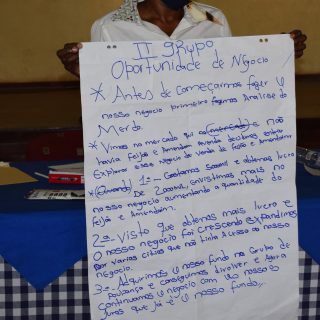 II grupo
Oportunidade de Négocio
* Antes de começarmos fazer o
nosso negocio primeiro fazemos Analise do
Merdo.
* Vimos no mercado que as e não
havia feijão e Amendoim decidimos entrar
Explorar esse negocio de venda de feijão e Amendoim
* 1º - Ganhamos e obtemos lucro
De 2000mt, envistimos mais no
nosso negocio aumentando a quantidade de
feijão e Amendoim.
2º - Visto que obtemos mais lucro e
O nosso negocio foi crescendo Expandimos
por varias citios que não tinha Acesso ao nosso
negocio.
3º - Adquirimos o nosso fundo no Grupo de
Poupança e conseguimos divolver e Agora
continuamos o negocio com o nosso
juros que já é o nosso fundo.